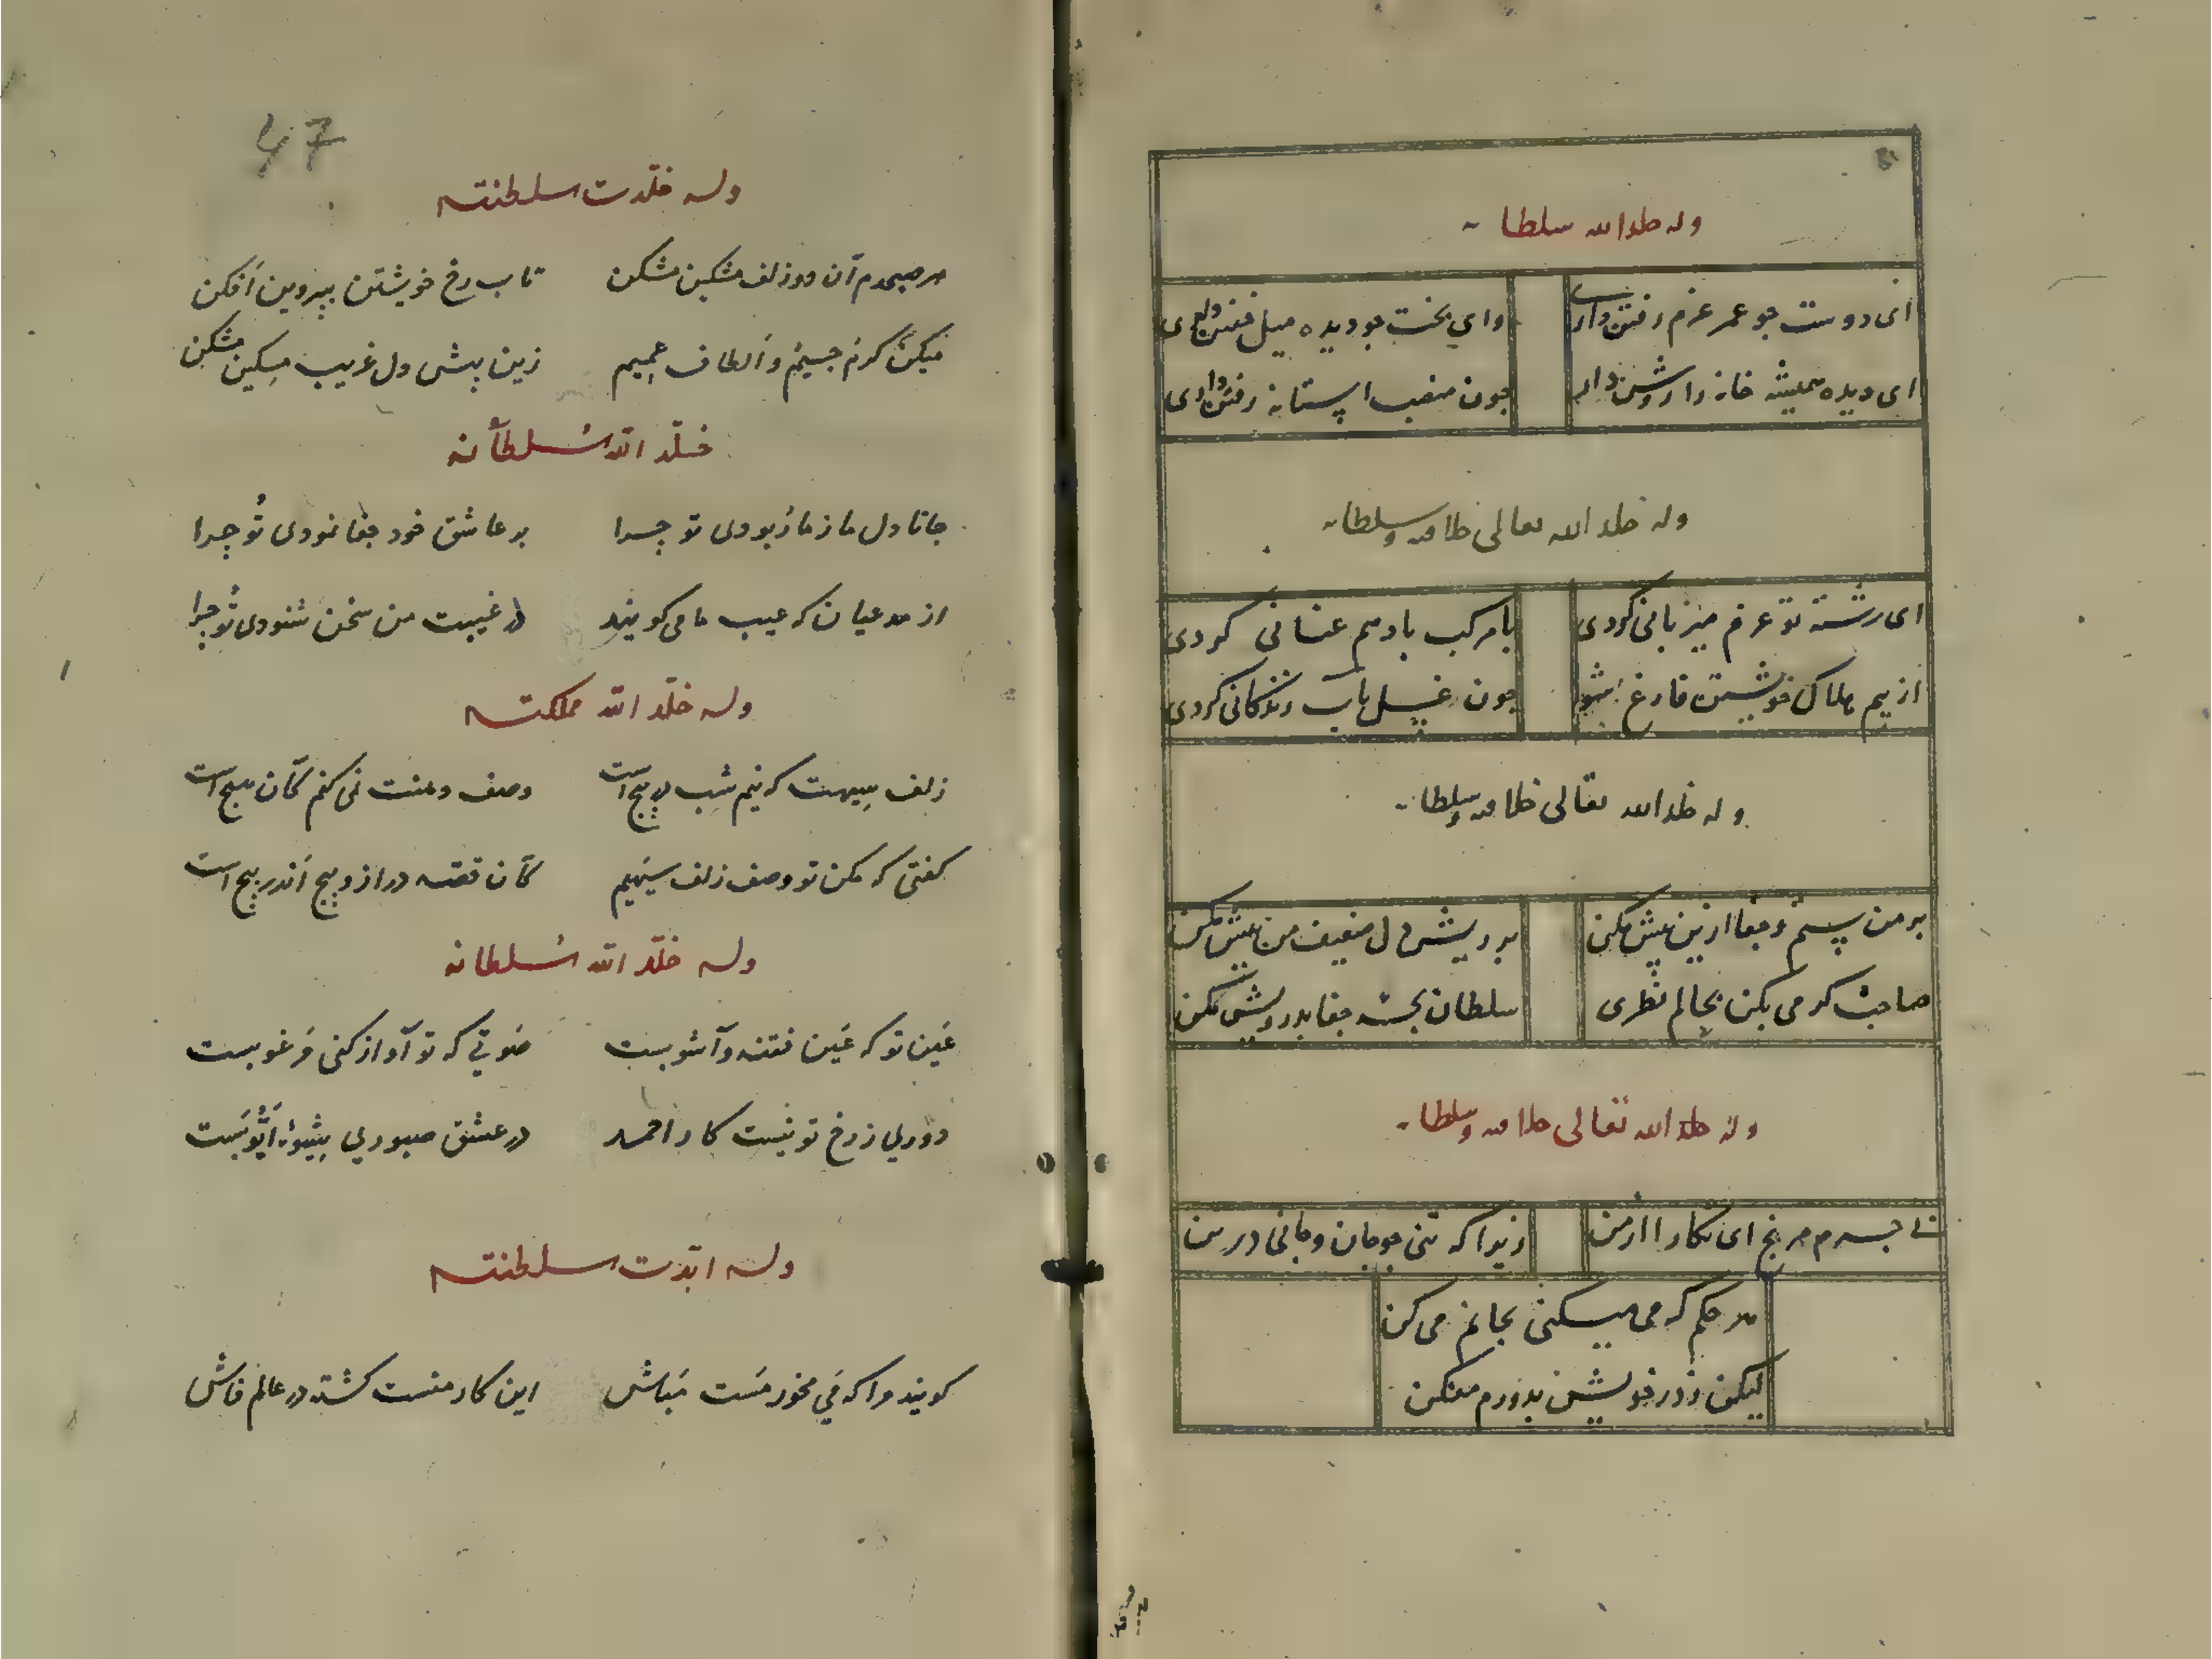 وله خلد الله سلطانه
ای دوست جو عمر عزم رفتن داری وای بخت جو دیده میل خفتن داری
ای دیده همیشه خانه را روشن دار جون منصب استانه رفتن داری
وله خلد الله تعالی خلافته وسلطانه
ای رشته تو عزم میزبانی کردی با مرکب باد هم عنانی کردی
از بیم هلاک خویشتن فارغ شو جون غسل بآب زندکانی کردی
وله خلد الله تعالی خلافته وسلطانه
بر من ستم و جفا ازین بیش مکن بر ریش دل ضعیف من نیش مکن
صاحب کرمی بکن بحالم نظری سلطان بحشم جفا بدرویش مکن
وله خلد الله تعالی خلافته وسلطانه
بی جرم مرنج ای نکارا از من زیرا که تنی جو جان و جانی در من
هر حکم که می میکنی بجانم می کن
لیکن ز در خویشتن بدورم مفکن
47
وله خلّدت سلطنته
هر صبحدم آن دو زلف مشکین مشکن تاب رخ خویشتن بپروین اَفکن
میکن کرم جسیم و اَلطاف عمیم زین بیش دل غریب مسکین مشکن
خلّد الله سُلطانه
جانا دل ما ز ما رُبودی تو چرا بر عاشق خود جفا نمودی تُو چرا
از مدعیان که عیب ما می کویند در غیبت من سخن شنودی تُو چرا
وله خلّد الله مملکته
زلف سیهت که نیم شب در پیچ است وصف دهنت نمی کنم کان هیچ است
کفتی که مکن تو وصف زلف سیَهم کان قصه دراز و پیچ اَندر پیچ است
وله خلّد الله سُلطانه
عَین تو که عَین فتنه و آشوبست صَوتی که تو آواز کنی مَرغوبست
دوری ز رخ تو نیست کار احمد در عشق صبوری شیوۀ اَیُّوبَست
وله ابّدت سلطنته
کویند مرا که مَی مخور مَست مَباش این کار منست کشته در عالم فاش